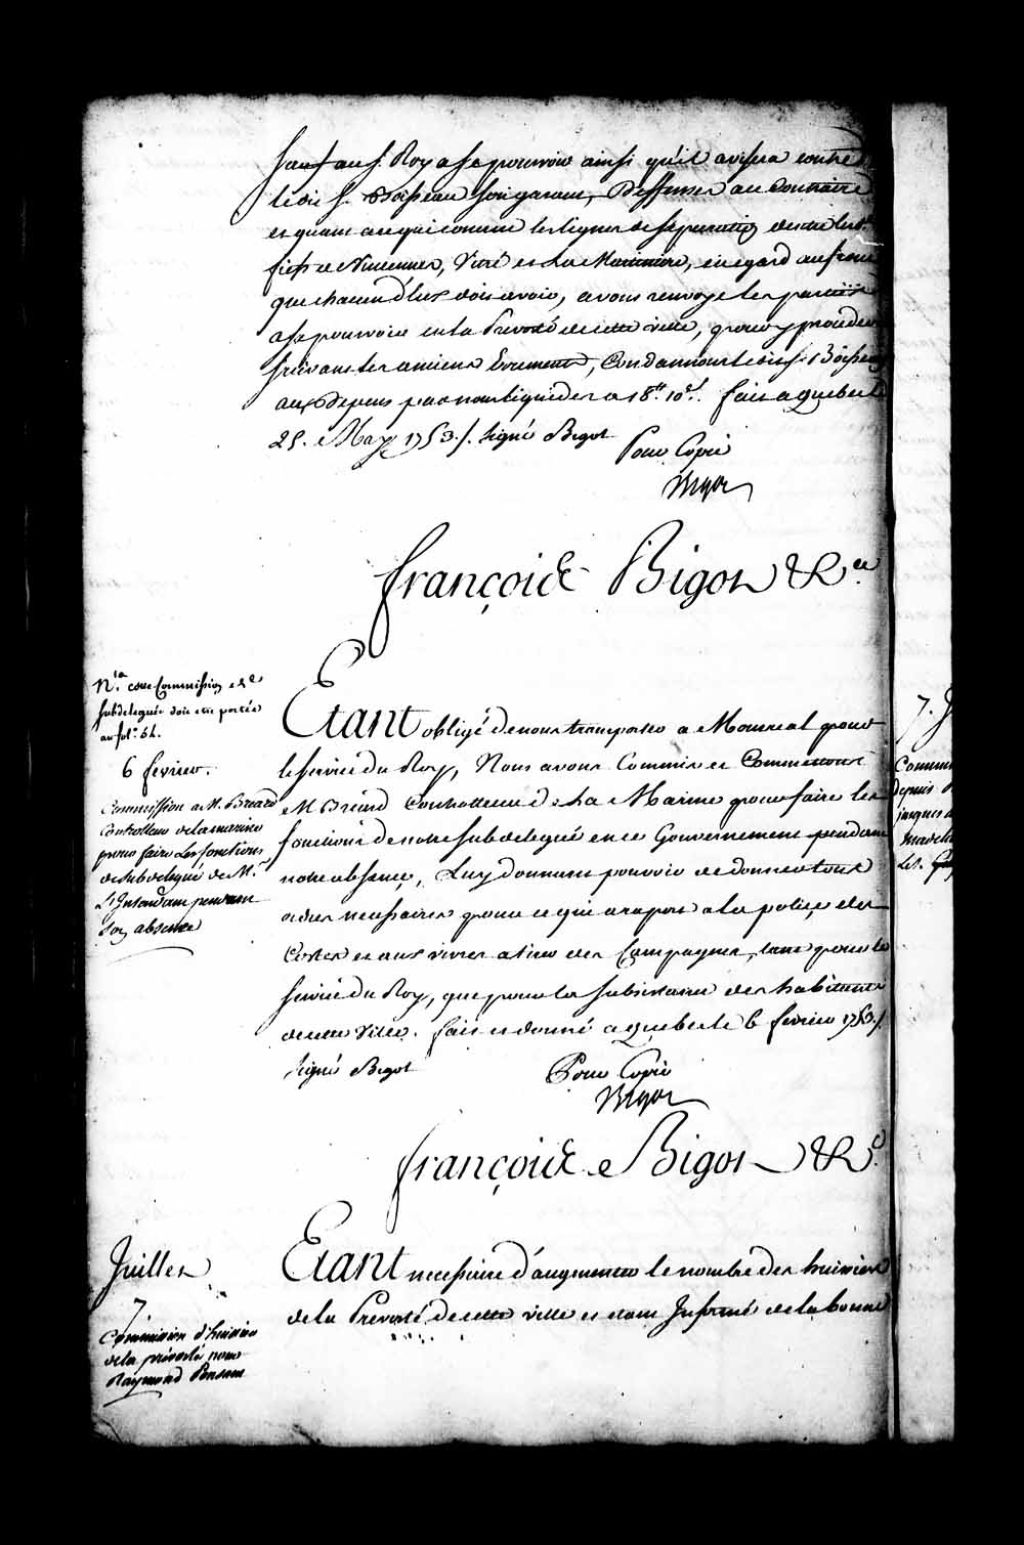 Sauf au S. Roy a se pourvoir ainsi qu'il avisera contre
ledit S. Boisseau son garant, Deffenses au Contraire
et quant a ce qui concerne les lignes de separation desdits
fiefs de Vincennes, Vitré et La Martiniere, eu egard au front
que chacun d'eux doit avoir, avons renvoyé les parties
a se pourvoir en la Prevosté de cette ville, pour y proceder
suivant les anciens Errements, Condamnons ledit S. Boisseau
aux Depens par nous liquidés a 18.tt 10.s fait a quebec le
25. May 1753./. signé Bigot
Pour Copie
Bigot
françois Bigot &c.
N.ta cette Commission de
subdelegué doit etre portée
au fol.o 54.
6 fevrier.
Commission a M. Breard
Controlleur de la marine
pour faire Les fonctions
de subdelegué de M.
L'Intendant pendant
son absence
Etant obligé de nous transporter a Montreal pour
le service du Roy, Nous avons Commis et Commettons
M. Breard Controlleur de La Marine pour faire les
fonctions de notre subdelegué en ce Gouvernement pendant
notre absence, Luy donnons pouvoir de donner tous
ordres necessaires pour ce qui a raport a la police des
Costes et aux vivres a tirer des Campagnes, tant pour le
service du Roy, que pour la subsistance des habitants
de cette Ville. fait et donné a quebec le 6 fevrier 1753./.
signé Bigot
Pour Copie
Bigot
françois Bigot &c.
Juillet
7
Commission d'huissier
de la prévosté pour
Raymond
Etant necessaire d'augmenter le nombre des huissiers
de la Prevosté de cette ville et etant Informé de la bonne
7. J
Comm
depuis
jusques a